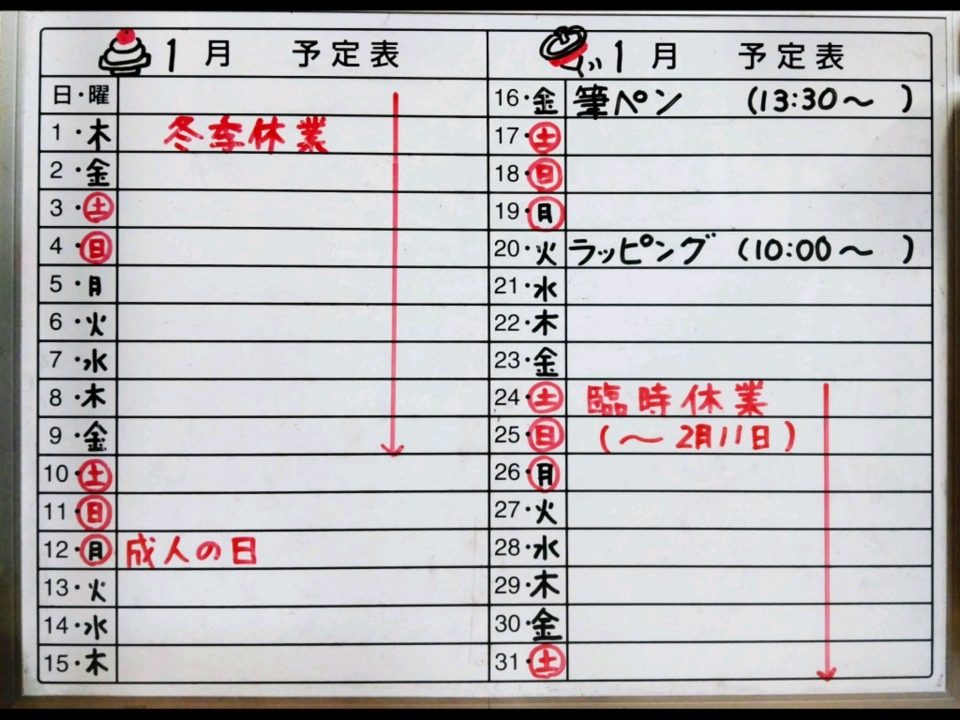 1月 予定表
日・曜
1・木 冬季休業
2・金
3・土
4・日
5・月
6・火
7・水
8・木
9・金
10・土
11・日
12・月 成人の日
13・火
14・水
15・木
1月 予定表
16・金 筆ペン (13:30〜 )
17・土
18・日
19・月
20・火 ラッピング (10:00〜 )
21・水
22・木
23・金
24・土 臨時休業
25・日 (〜2月11日)
26・月
27・火
28・水
29・木
30・金
31・土